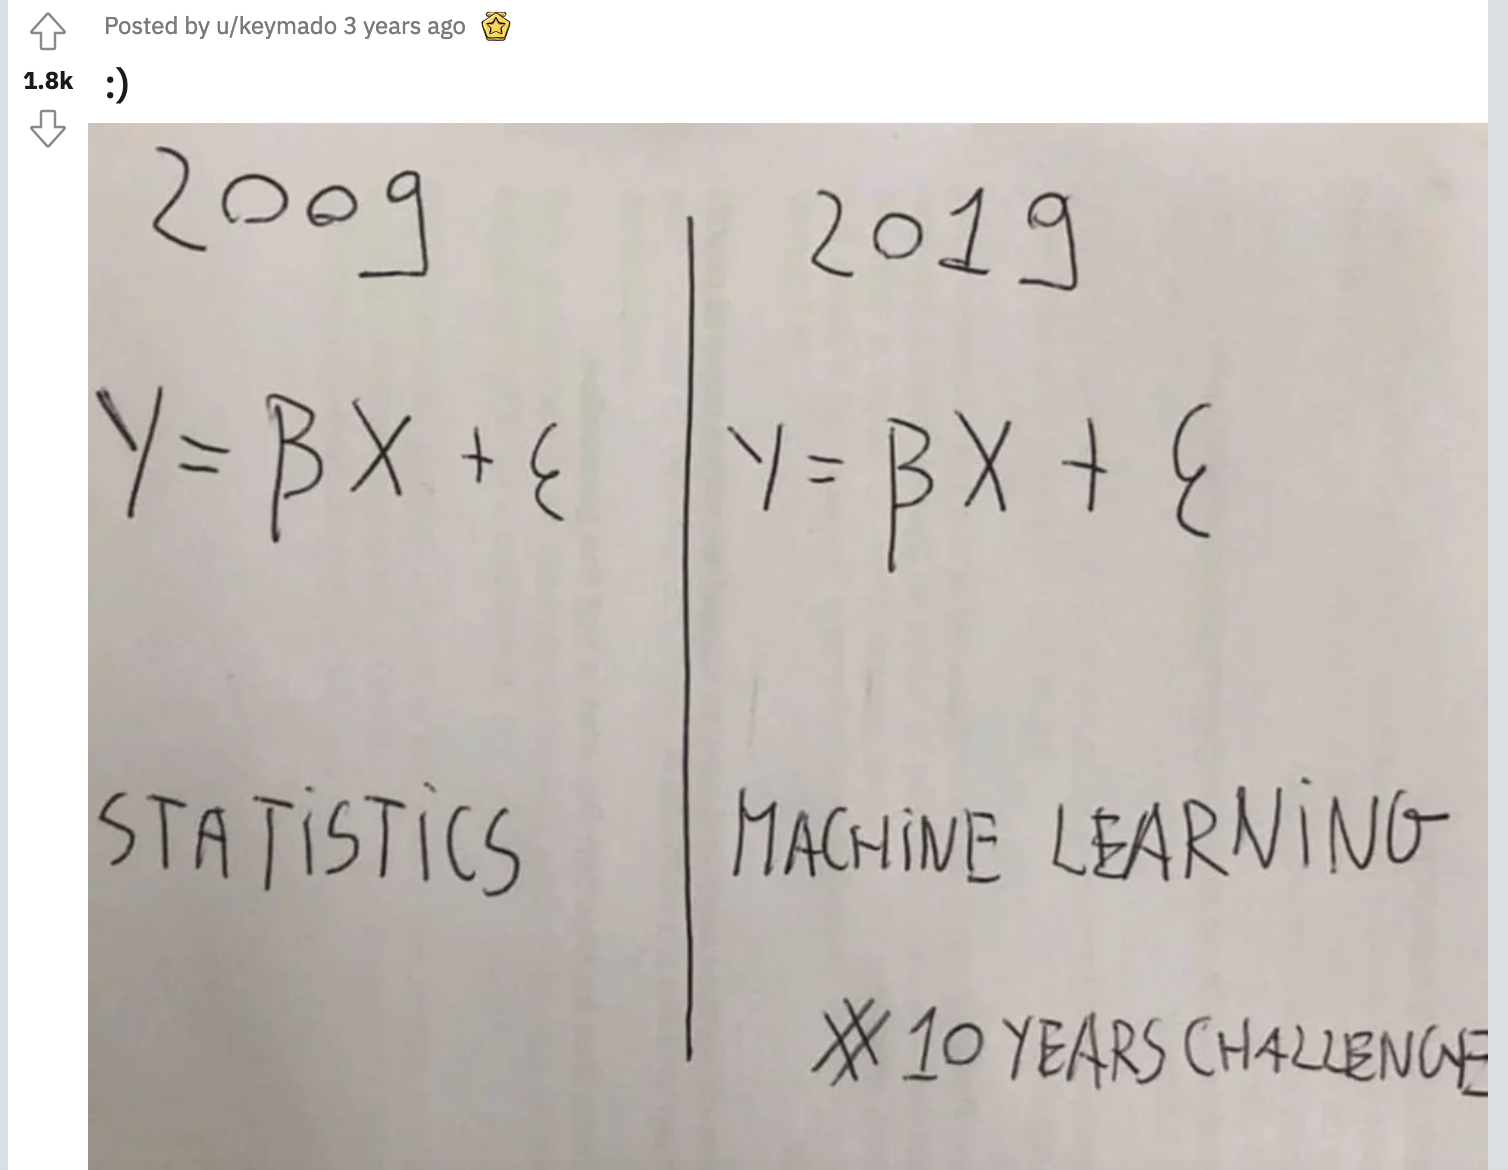 Posted by u/keymado 3 years ago
1.8k
:)
2009
Y = β X + ε
STATISTICS
2019
Y = β X + ε
MACHINE LEARNING
# 10 YEARS CHALLENGE